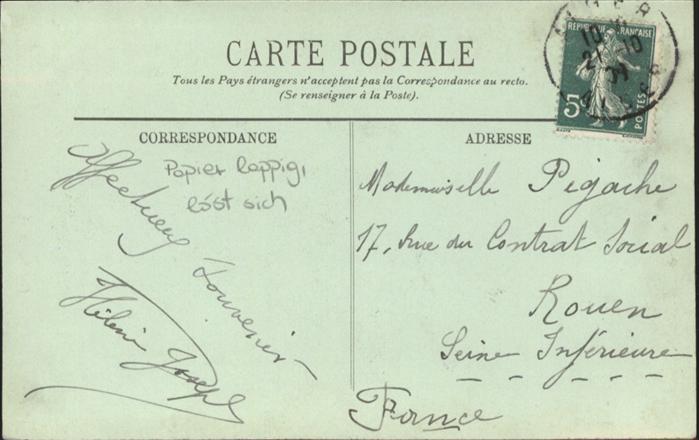 CARTE POSTALE
Tous les Pays étrangers n'acceptent pas la Correspondance au recto.
(Se renseigner à la Poste).
CORRESPONDANCE
Papier lappig,
löst sich
Affectueux
Souvenir
Hélène Joseph
ADRESSE
Mademoiselle Pigache
17, Rue du Contrat Social
Rouen
Seine Inférieure
France
REPUBLIQUE FRANÇAISE
5
POSTES
ALGER
10
21-10
09
ALGER